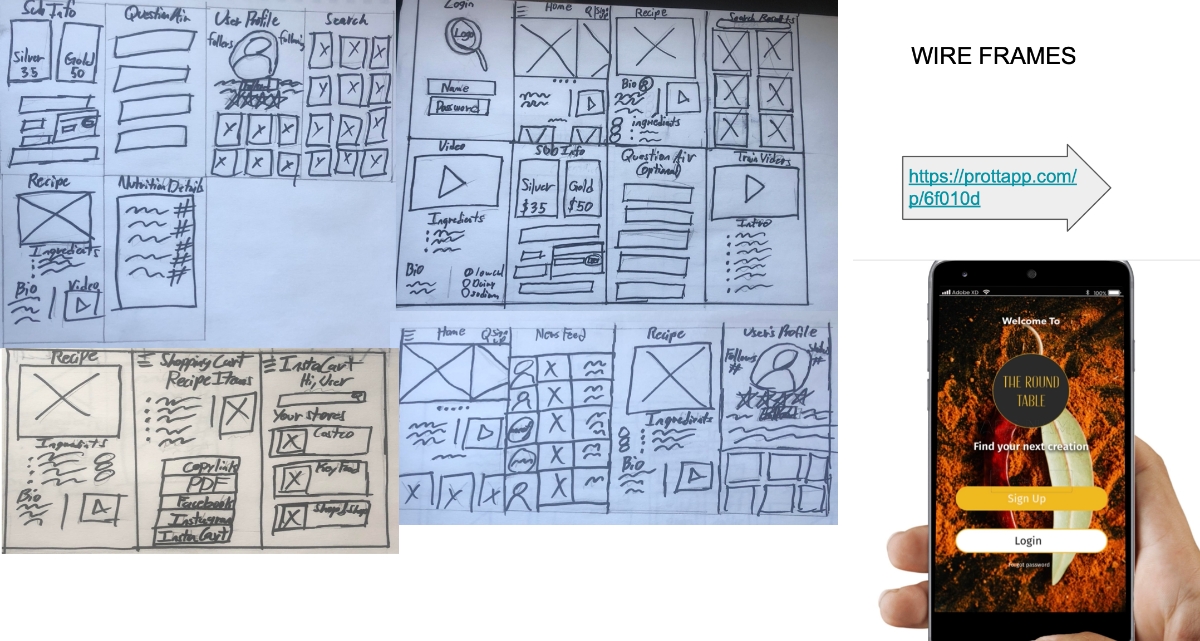 Sub Info
Silver
35
Gold
50
QuestionAir
User Profile
Follers
Following
Search
Recipe
Ingredients
Bio
Video
Nutrition Details
#
#
#
#
#
Login
Logo
Name
Password
Home
Q Sign up
Recipe
Bio
ingredients
Search Results
Video
Ingredients
Bio
lowcal
Dairy
Sodium
Sub Info
Silver
$35
Gold
$50
Question Air
(optional)
Train Videos
Intro
WIRE FRAMES
https://prottapp.com/
p/6f010d
Recipe
Ingredients
Bio
Shopping Cart
Recipe Items
Copy link
PDF
Facebook
Instagram
InstaCart
InstaCart
Hi, User
Your stores
Costco
Key Food
Shop & Stop
Home
Q Sign up
News Feed
Recipe
Ingredients
Bio
User's Profile
Follows
#
#
Adobe XD
100%
Welcome To
THE ROUND
TABLE
Find your next creation
Sign Up
Login
Forgot password